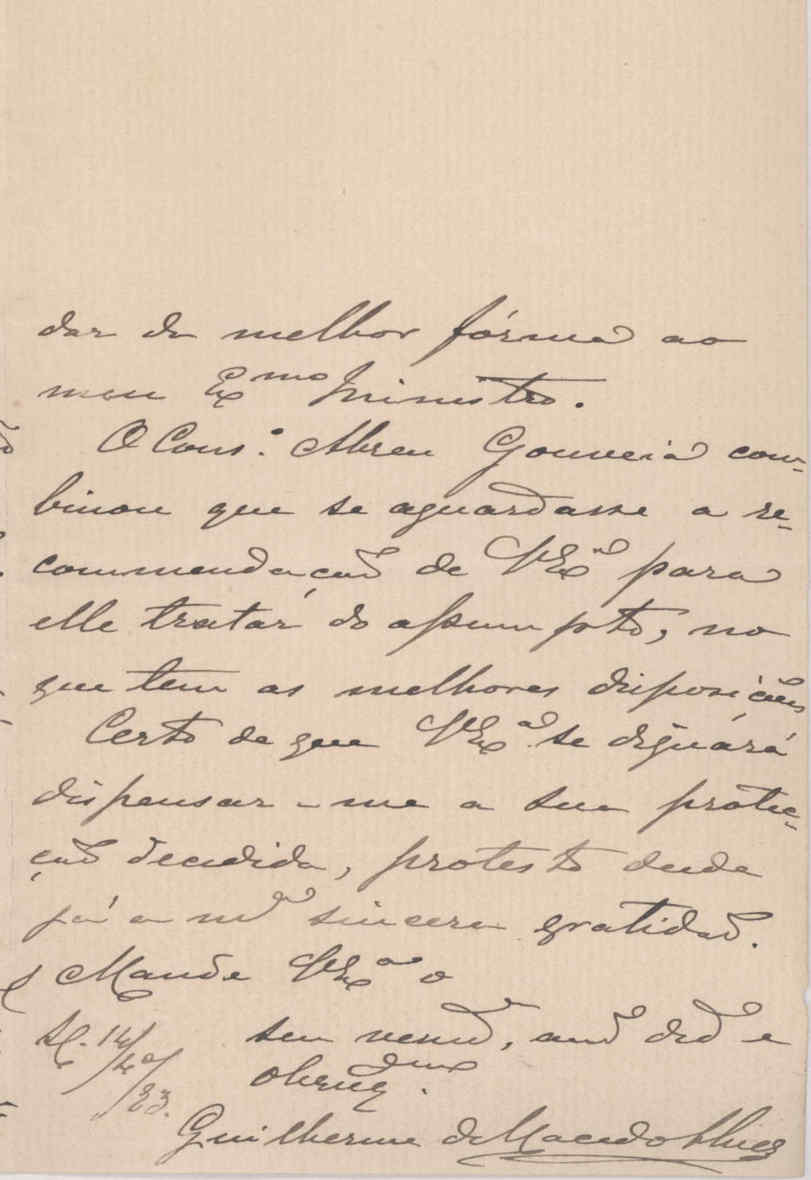 dar da melhor fórma ao
meu Ex.mo Ministro.
O Cons.º Abreu Gouveia com-
binou que se aguardasse a re-
commendação de V Ex.ª para
elle tratar do assumpto, no
que tem as melhores disposições
Certo de que V Ex.ª se dignará
dispensar-me a sua prote-
ção decidida, protesto desde
já a m.ª sincera gratidão.
Mande V Ex.ª o
seu, am.º e
obrig.mo
Guilherme de Macedo